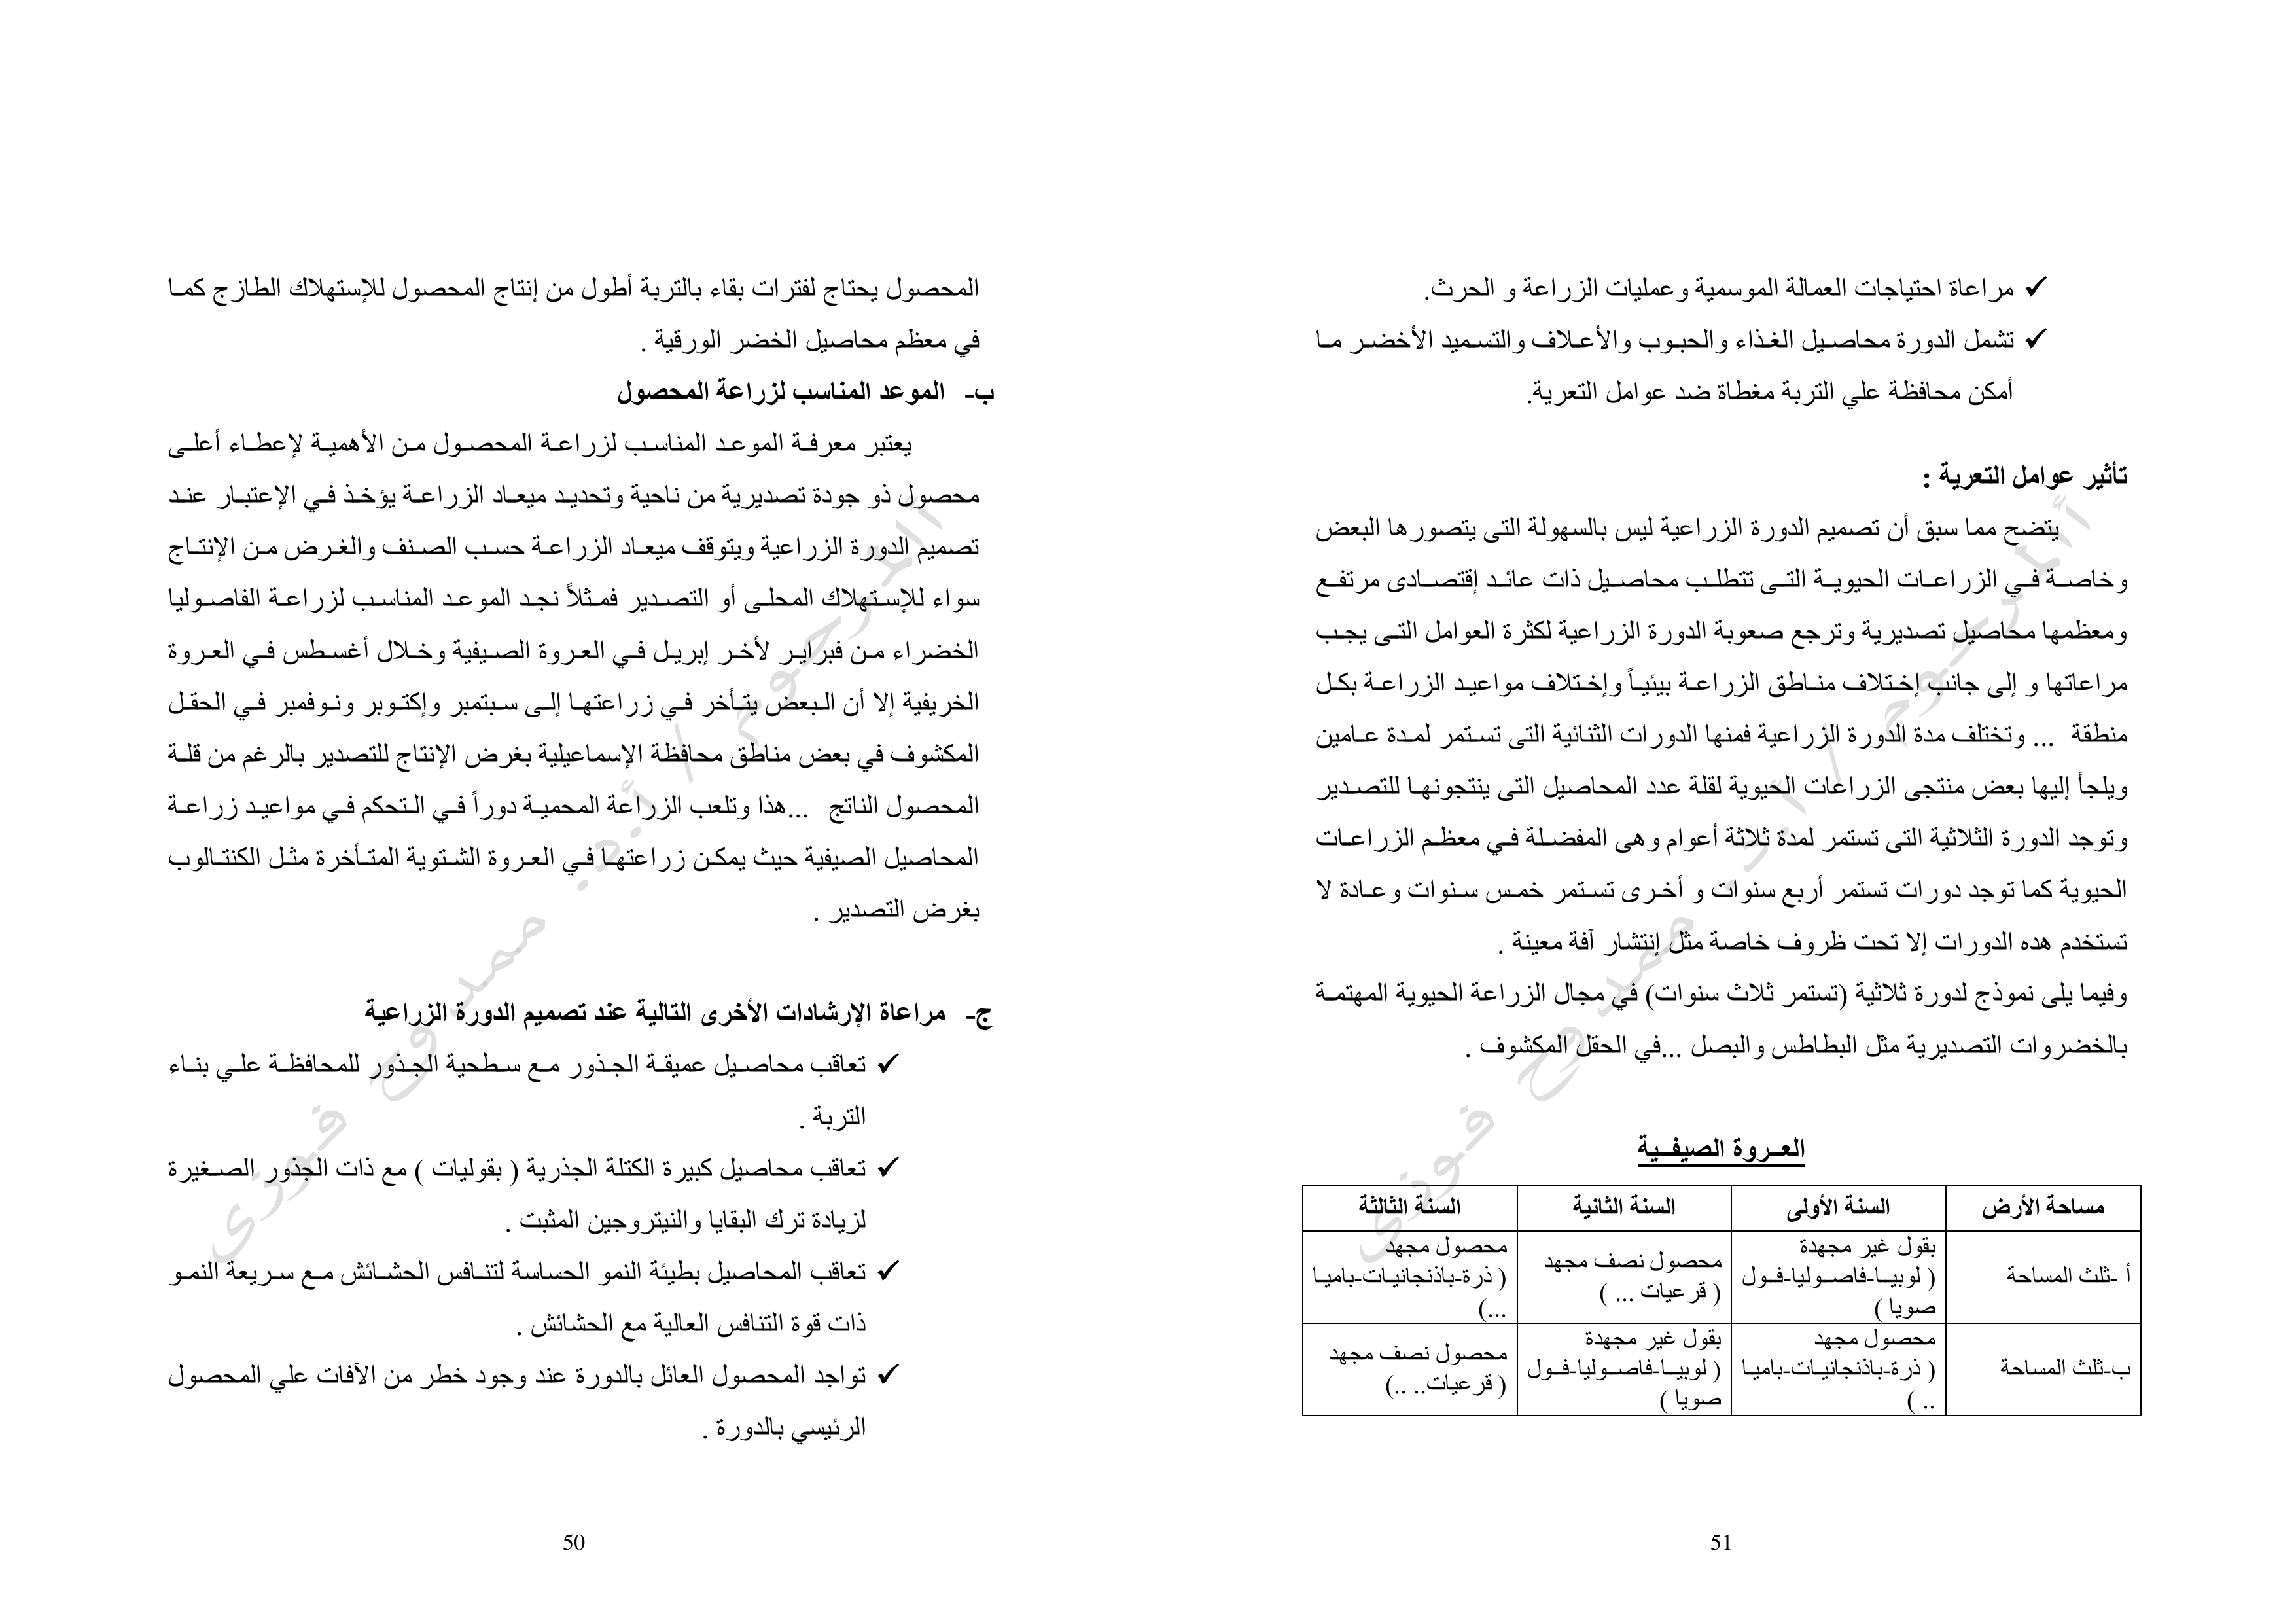 المحصول يحتاج لفترات بقاء بالتربة أطول من إنتاج المحصول للإستهلاك الطازج كما
في معظم محاصيل الخضر الورقية .
ب- الموعد المناسب لزراعة المحصول
يعتبر معرفة الموعد المناسب لزراعة المحصول من الأهمية لإعطاء أعلى
محصول ذو جودة تصديرية من ناحية وتحديد ميعاد الزراعة يؤخذ في الإعتبار عند
تصميم الدورة الزراعية ويتوقف ميعاد الزراعة حسب الصنف والغرض من الإنتاج
سواء للإستهلاك المحلى أو التصدير فمثلاً نجد الموعد المناسب لزراعة الفاصوليا
الخضراء من فبراير لأخر إبريل في العروة الصيفية وخلال أغسطس في العروة
الخريفية إلا أن البعض يتأخر في زراعتها إلى سبتمبر وإكتوبر ونوفمبر في الحقل
المكشوف في بعض مناطق محافظة الإسماعيلية بغرض الإنتاج للتصدير بالرغم من قلة
المحصول الناتج ...هذا وتلعب الزراعة المحمية دوراً في التحكم في مواعيد زراعة
المحاصيل الصيفية حيث يمكن زراعتها في العروة الشتوية المتأخرة مثل الكنتالوب
بغرض التصدير .
ج- مراعاة الإرشادات الأخرى التالية عند تصميم الدورة الزراعية
✓ تعاقب محاصيل عميقة الجذور مع سطحية الجذور للمحافظة علي بناء
التربة .
✓ تعاقب محاصيل كبيرة الكتلة الجذرية ( بقوليات ) مع ذات الجذور الصغيرة
لزيادة ترك البقايا والنيتروجين المثبت .
✓ تعاقب المحاصيل بطيئة النمو الحساسة لتنافس الحشائش مع سريعة النمو
ذات قوة التنافس العالية مع الحشائش .
✓ تواجد المحصول العائل بالدورة عند وجود خطر من الآفات علي المحصول
الرئيسي بالدورة .
50
المرحوم / أ.د. ممدوح فوزى
✓ مراعاة احتياجات العمالة الموسمية وعمليات الزراعة و الحرث.
✓ تشمل الدورة محاصيل الغذاء والحبوب والأعلاف والتسميد الأخضر ما
أمكن محافظة علي التربة مغطاة ضد عوامل التعرية.
تأثير عوامل التعرية :
يتضح مما سبق أن تصميم الدورة الزراعية ليس بالسهولة التى يتصورها البعض
وخاصة في الزراعات الحيوية التى تتطلب محاصيل ذات عائد إقتصادى مرتفع
ومعظمها محاصيل تصديرية وترجع صعوبة الدورة الزراعية لكثرة العوامل التى يجب
مراعاتها و إلى جانب إختلاف مناطق الزراعة بيئياً وإختلاف مواعيد الزراعة بكل
منطقة ... وتختلف مدة الدورة الزراعية فمنها الدورات الثنائية التى تستمر لمدة عامين
ويلجأ إليها بعض منتجى الزراعات الحيوية لقلة عدد المحاصيل التى ينتجونها للتصدير
وتوجد الدورة الثلاثية التى تستمر لمدة ثلاثة أعوام وهى المفضلة في معظم الزراعات
الحيوية كما توجد دورات تستمر أربع سنوات و أخرى تستمر خمس سنوات وعادة لا
تستخدم هده الدورات إلا تحت ظروف خاصة مثل إنتشار آفة معينة .
وفيما يلى نموذج لدورة ثلاثية (تستمر ثلاث سنوات) في مجال الزراعة الحيوية المهتمة
بالخضروات التصديرية مثل البطاطس والبصل ...في الحقل المكشوف .
العروة الصيفية
مساحة الأرض السنة الأولى السنة الثانية السنة الثالثة
أ -ثلث المساحة
بقول غير مجهدة
( لوبيا-فاصوليا-فول
صويا )
محصول نصف مجهد
( قرعيات ... )
محصول مجهد
( ذرة-باذنجانيات-باميا
...)
ب-ثلث المساحة
محصول مجهد
( ذرة-باذنجانيات-باميا
.. )
بقول غير مجهدة
( لوبيا-فاصوليا-فول
صويا )
محصول نصف مجهد
( قرعيات.. ..)
51
المرحوم / أ.د. ممدوح فوزى